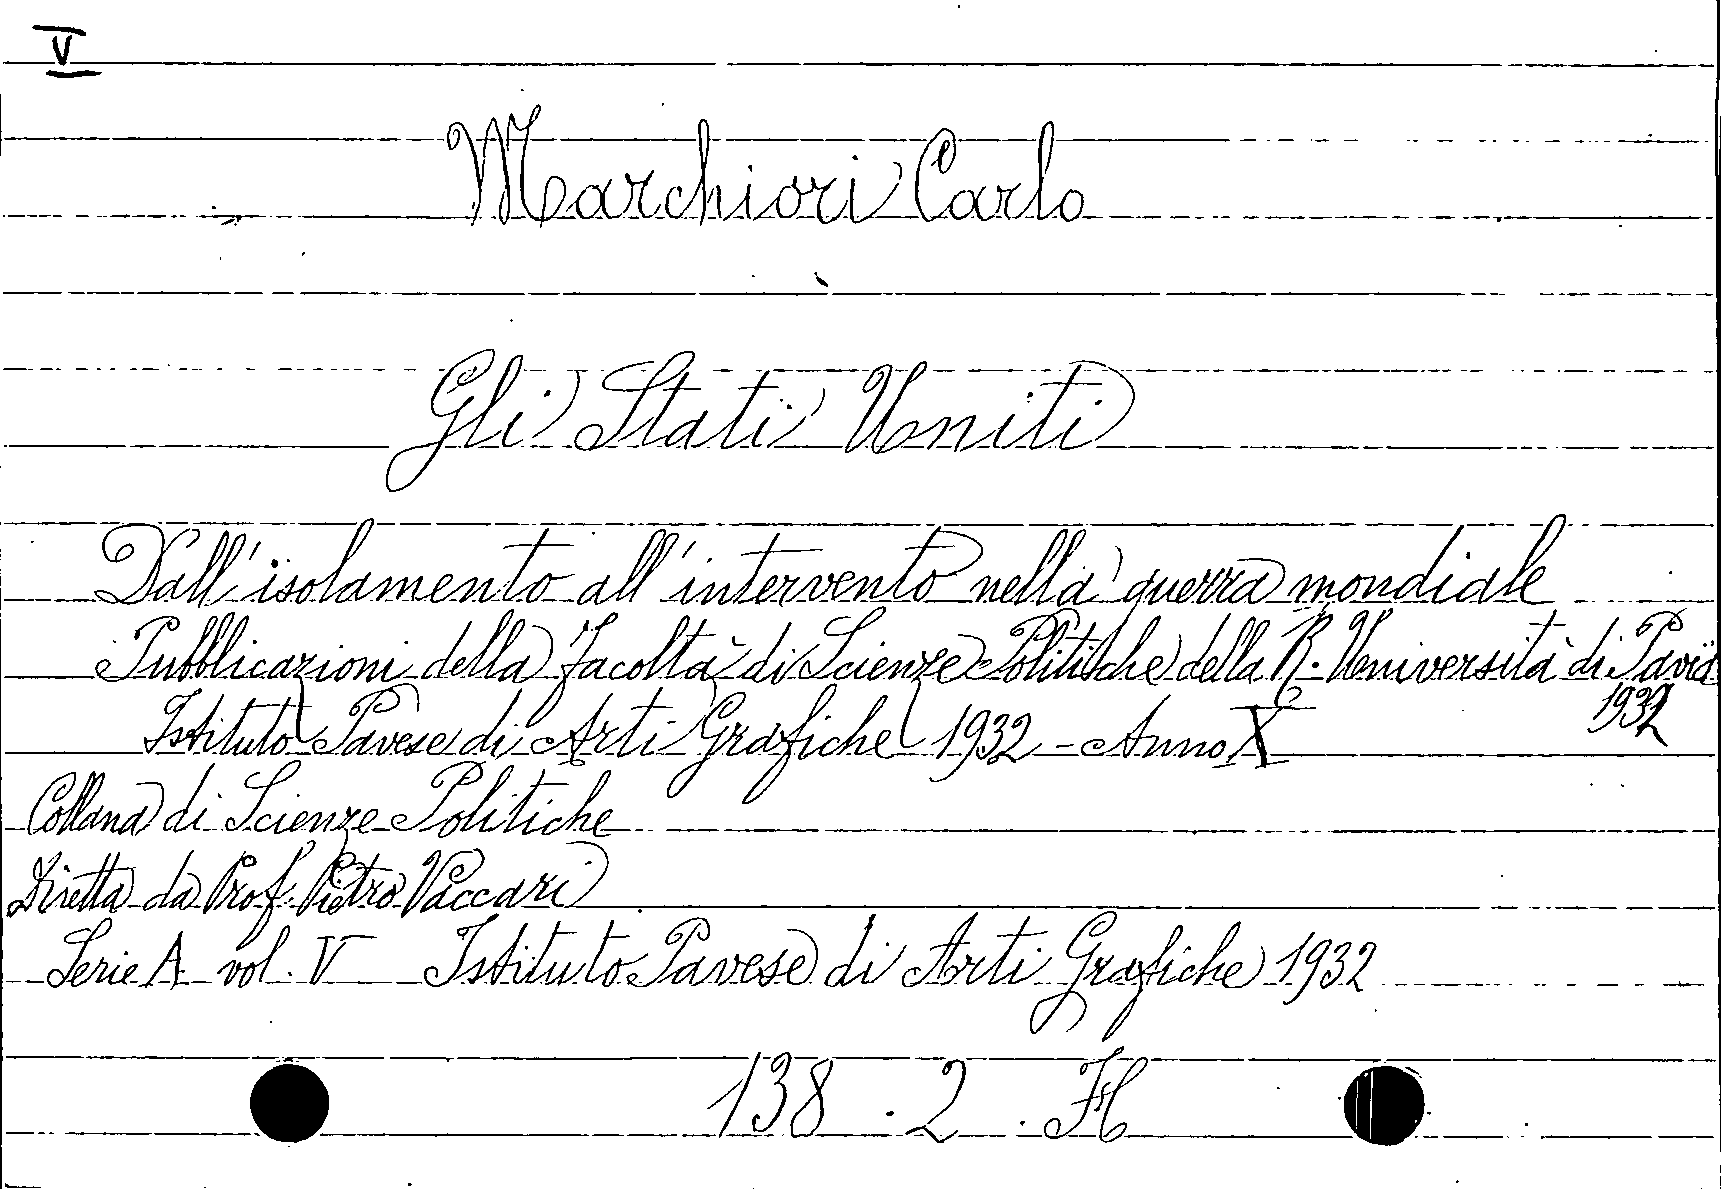 V
Marchiori Carlo
Gli Stati Uniti
Dall'isolamento all'intervento nella guerra mondiale
Pubblicazioni della Facoltà di Scienze Politiche della R. Università di Pavia
1932
Istituto Pavese di Arti Grafiche 1932 - Anno X
Collana di Scienze Politiche
Diretta da Prof. Pietro Vaccari
Serie A vol. V Istituto Pavese di Arti Grafiche 1932
138 . 2 . H